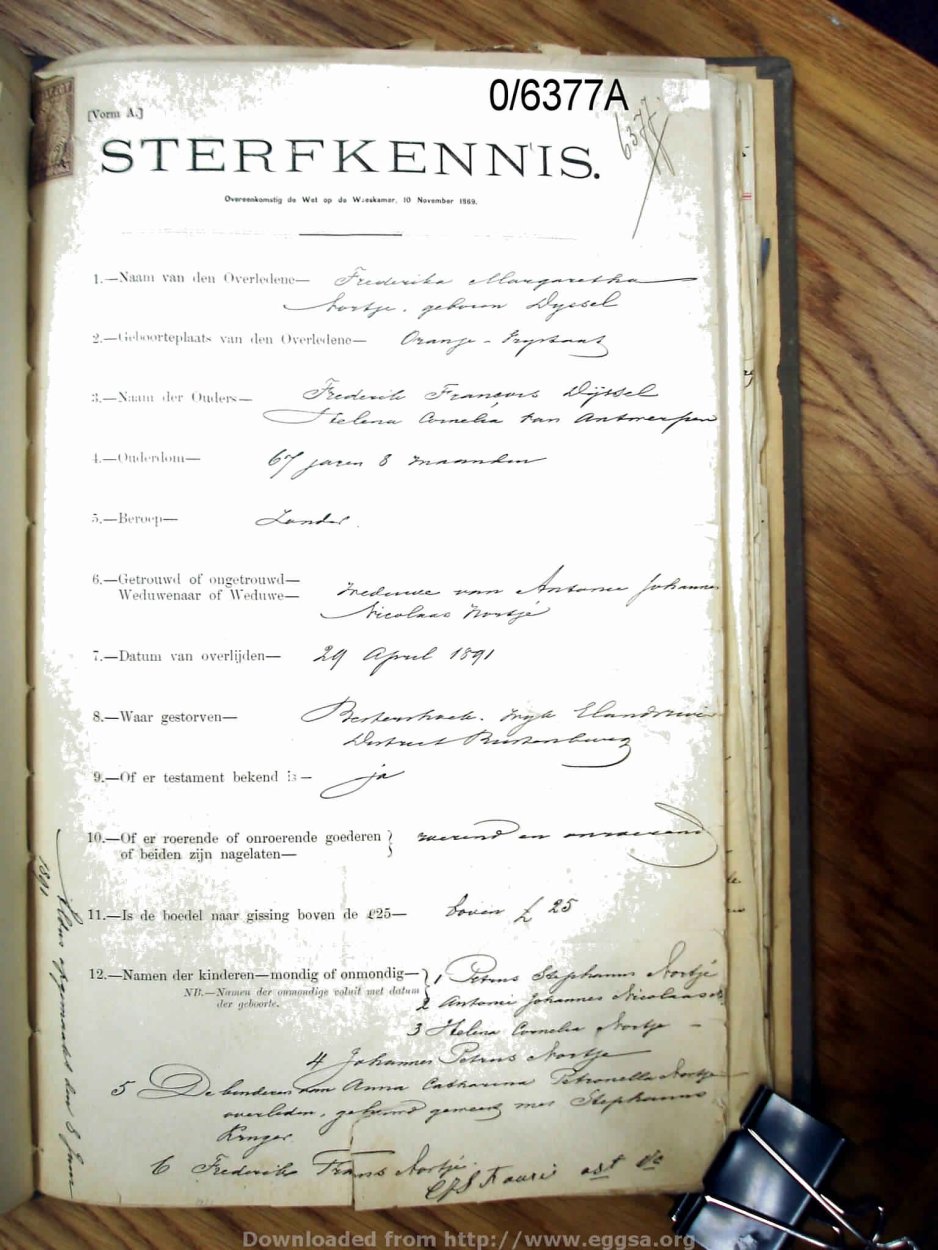 0/6377A
6377
[Vorm A.]
STERFKENNIS.
Overeenkomstig de Wet op de Weeskamer, 10 November 1869.
1.—Naam van den Overledene— Frederika Margaretha
Nortje, geboren Dyssel
2.—Geboorteplaats van den Overledene— Oranje-Vrystaat
3.—Naam der Ouders— Frederik Francois Dijssel
Helena Cornelia van Antwerpen
4.—Ouderdom— 67 jaren 8 maanden
5.—Beroep— Zonder.
6.—Getrouwd of ongetrouwd—
Weduwenaar of Weduwe— Weduwe van Antonie Johannes
Nicolaas Nortjé
7.—Datum van overlijden— 29 April 1891
8.—Waar gestorven— Wyk Elandsrivier
District Rustenburg
9.—Of er testament bekend is— ja
10.—Of er roerende of onroerende goederen } roerend en onroerend
of beiden zijn nagelaten—
11.—Is de boedel naar gissing boven de £25— boven £ 25
12.—Namen der kinderen—mondig of onmondig— } 1 Petrus Stephanus Nortjé
NB.—Namen der onmondige voluit met datum
der geboorte. 2 Antonie Johannes Nicolaas
3 Helena Cornelia Nortje —
4 Johannes Petrus Nortje
5 De kinderen van Anna Catharina Petronella Nortje
overleden, gehuwd geweest met Stephanus
Kruger.
6 Frederik Frans Nortjé
Aldus opgemaakt den 8 Juni
1891
Downloaded from http://www.eggsa.org